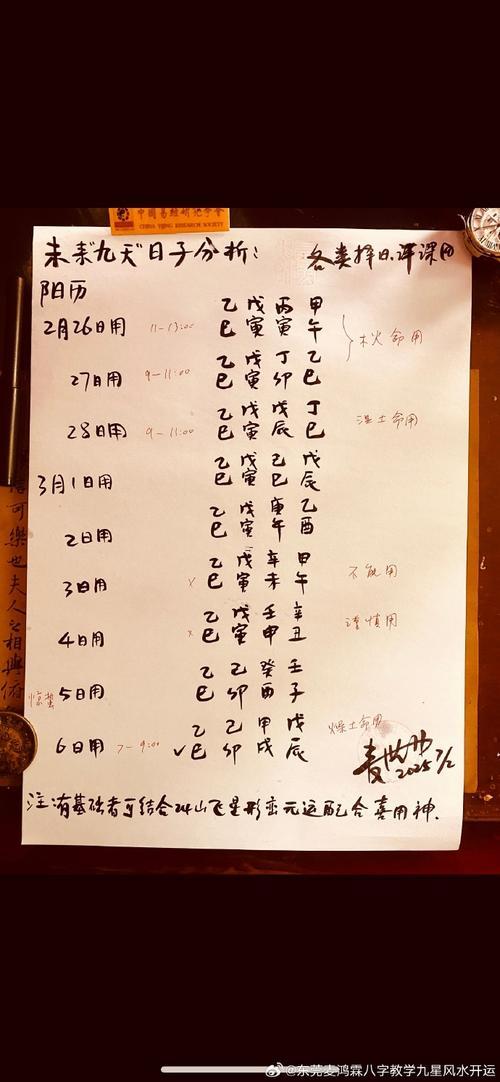 中国易经研究学会
CHINA YIJING RESEARCH SOCIETY
未来九天日子分析：
各类择日，评课用
阳历
乙 戊 丙 甲
2月26日用 11-13:00 巳 寅 寅 午 木火命用
乙 戊 丁 乙
27日用 9-11:00 巳 寅 卯 巳
乙 戊 戊 丁
28日用 9-11:00 巳 寅 辰 巳 湿土命用
乙 戊 己 戊
3月1日用 巳 寅 巳 辰
乙 戊 庚 乙
2日用 巳 寅 午 酉
乙 戊 辛 甲
3日用 x 巳 寅 未 午 不能用
乙 戊 壬 辛
4日用 x 巳 寅 申 丑 谨慎用
乙 己 癸 壬
惊蛰 5日用 巳 卯 酉 子
乙 己 甲 戊
6日用 7-9:00 ✓ 巳 卯 戌 辰 燥土命用
2025
注：有基础者可结合24山飞星形峦元运配合喜用神.
可樂也夫人之相與俯
@东莞麦鸿霖八字教学九星风水开运